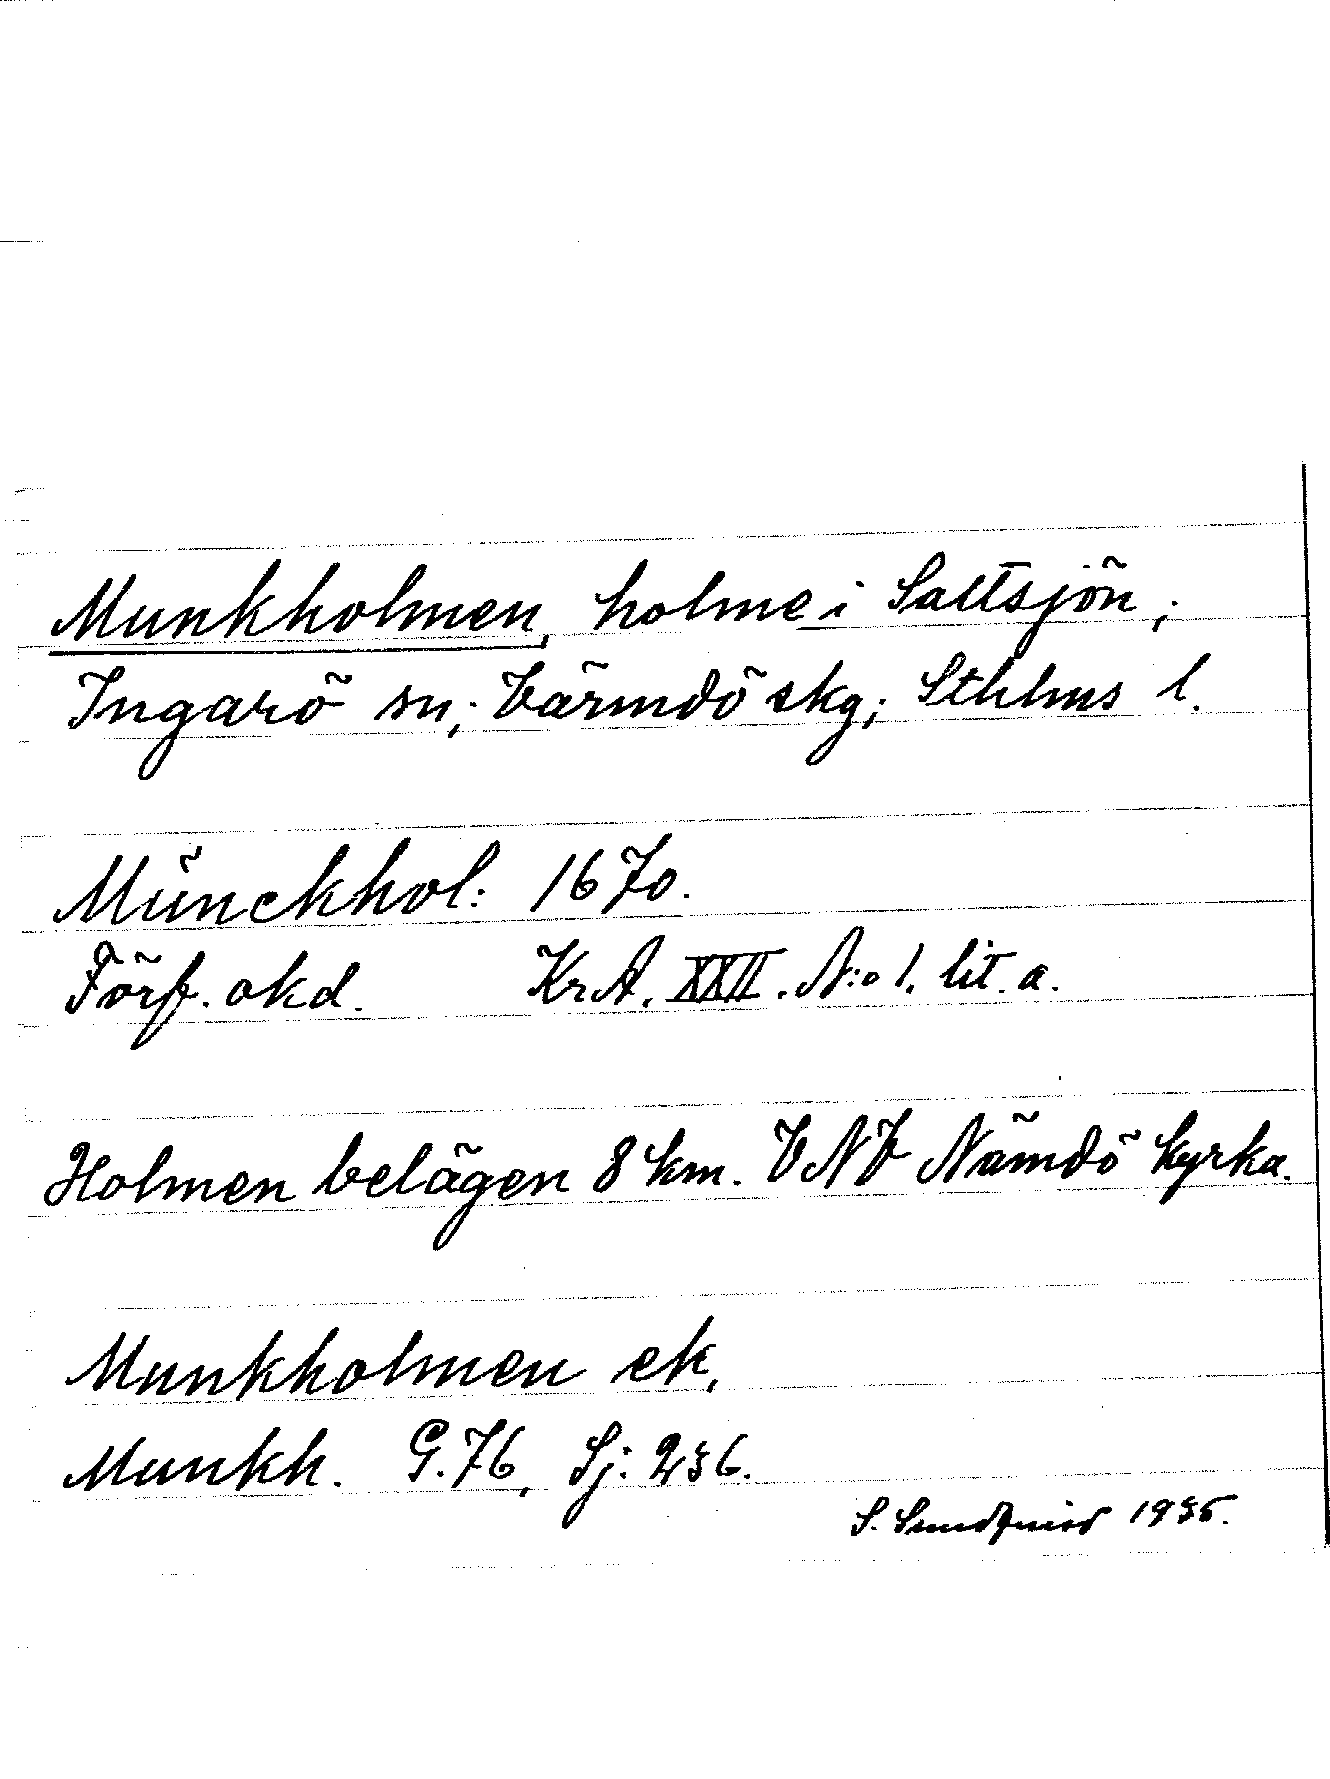 Munkholmen, holme i Saltsjön;
Ingarö sn; Värmdö skg; Sthlms l.
Münckhol: 1670.
Förf. okd. KrA. XXII. N:o 1. lit. a.
Holmen belägen 8 km. VNV Nämdö kyrka.
Munkholmen ek,
Munkh. G.76, Sj: 236.
S. 1935.